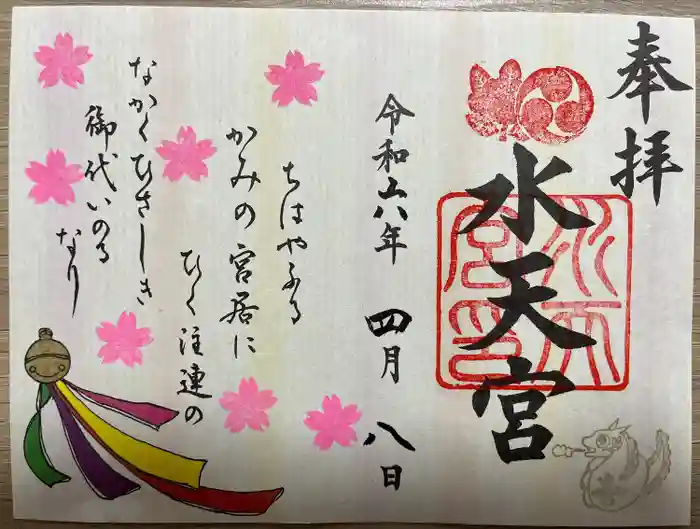 奉拝
水天宮
水天
宮印
令和六年 四月 八日
ちはやふる
かみの宮居に
ひく注連の
なかくひさしき
御代いのる
なり